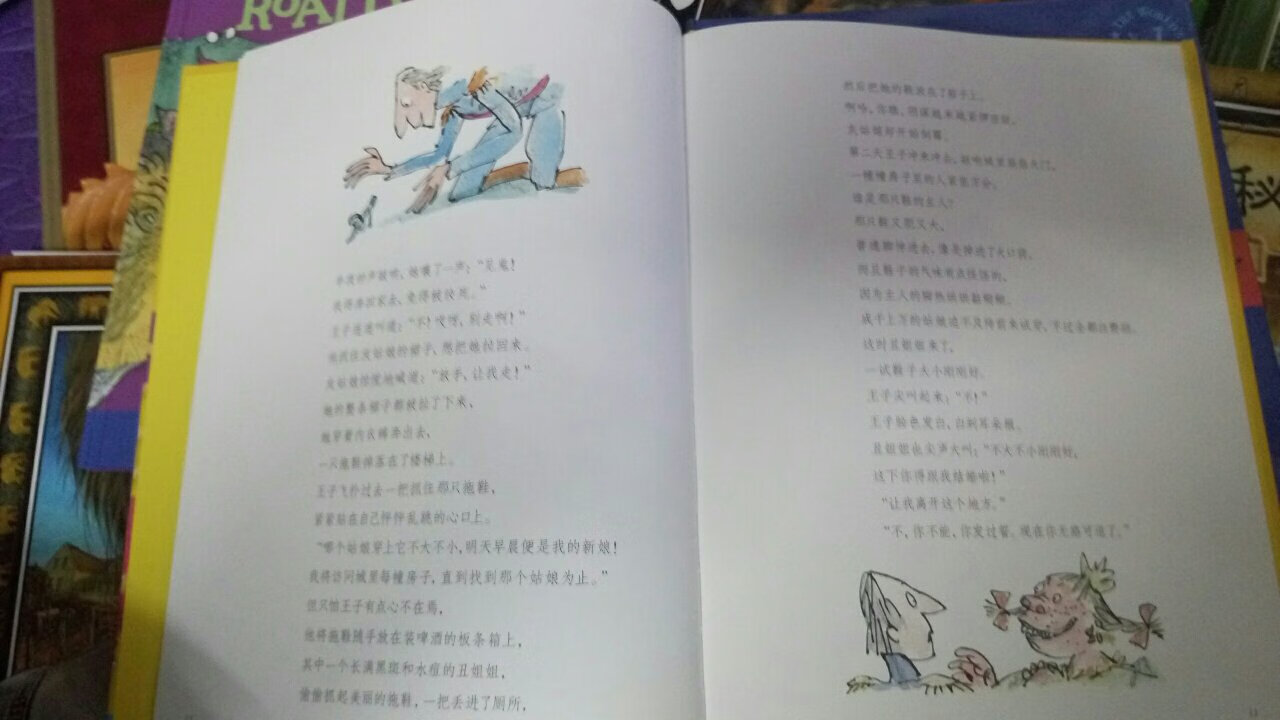 ROAL
秘
午夜钟声敲响，她嚷了一声：“见鬼！
我得奔回家去，免得被绞死。”
王子连连叫道：“不！哎呀，别走啊！”
他抓住灰姑娘的裙子，想把她拉回来。
灰姑娘惊慌地喊道：“放手，让我走！”
她的整条裙子都被拉了下来，
她穿着内衣裤奔出去，
一只拖鞋掉落在了楼梯上。
王子飞扑过去一把抓住那只拖鞋，
紧紧贴在自己怦怦乱跳的心口上。
“哪个姑娘穿上它不大不小，明天早晨便是我的新娘！
我将访问城里每幢房子，直到找到那个姑娘为止。”
但只怕王子有点心不在焉，
他将拖鞋随手放在装啤酒的板条箱上，
其中一个长满黑斑和水痘的丑姐姐，
偷偷抓起美丽的拖鞋，一把丢进了厕所，
然后把她的鞋放在了箱子上。
啊哈，你瞧，阴谋越来越
灰姑娘却开始倒霉。
第二天王子冲来冲去，敲响城里座座大门。
一幢幢房子里的人紧张万分。
谁是那只鞋的主人？
那只鞋又肥又大，
普通脚伸进去，像是掉进了大口袋。
而且鞋子的气味有点怪怪的，
因为主人的脚热烘烘黏糊糊。
成千上万的姑娘迫不及待前来试穿，不过全都白费劲。
这时丑姐姐来了，
一试鞋子大小刚刚好。
王子尖叫起来：“不！”
王子脸色发白，白到耳朵根。
丑姐姐也尖声大叫：“不大不小刚刚好，
这下你得跟我结婚啦！”
“让我离开这个地方。”
“不，你不能，你发过誓。现在你无路可退了。”